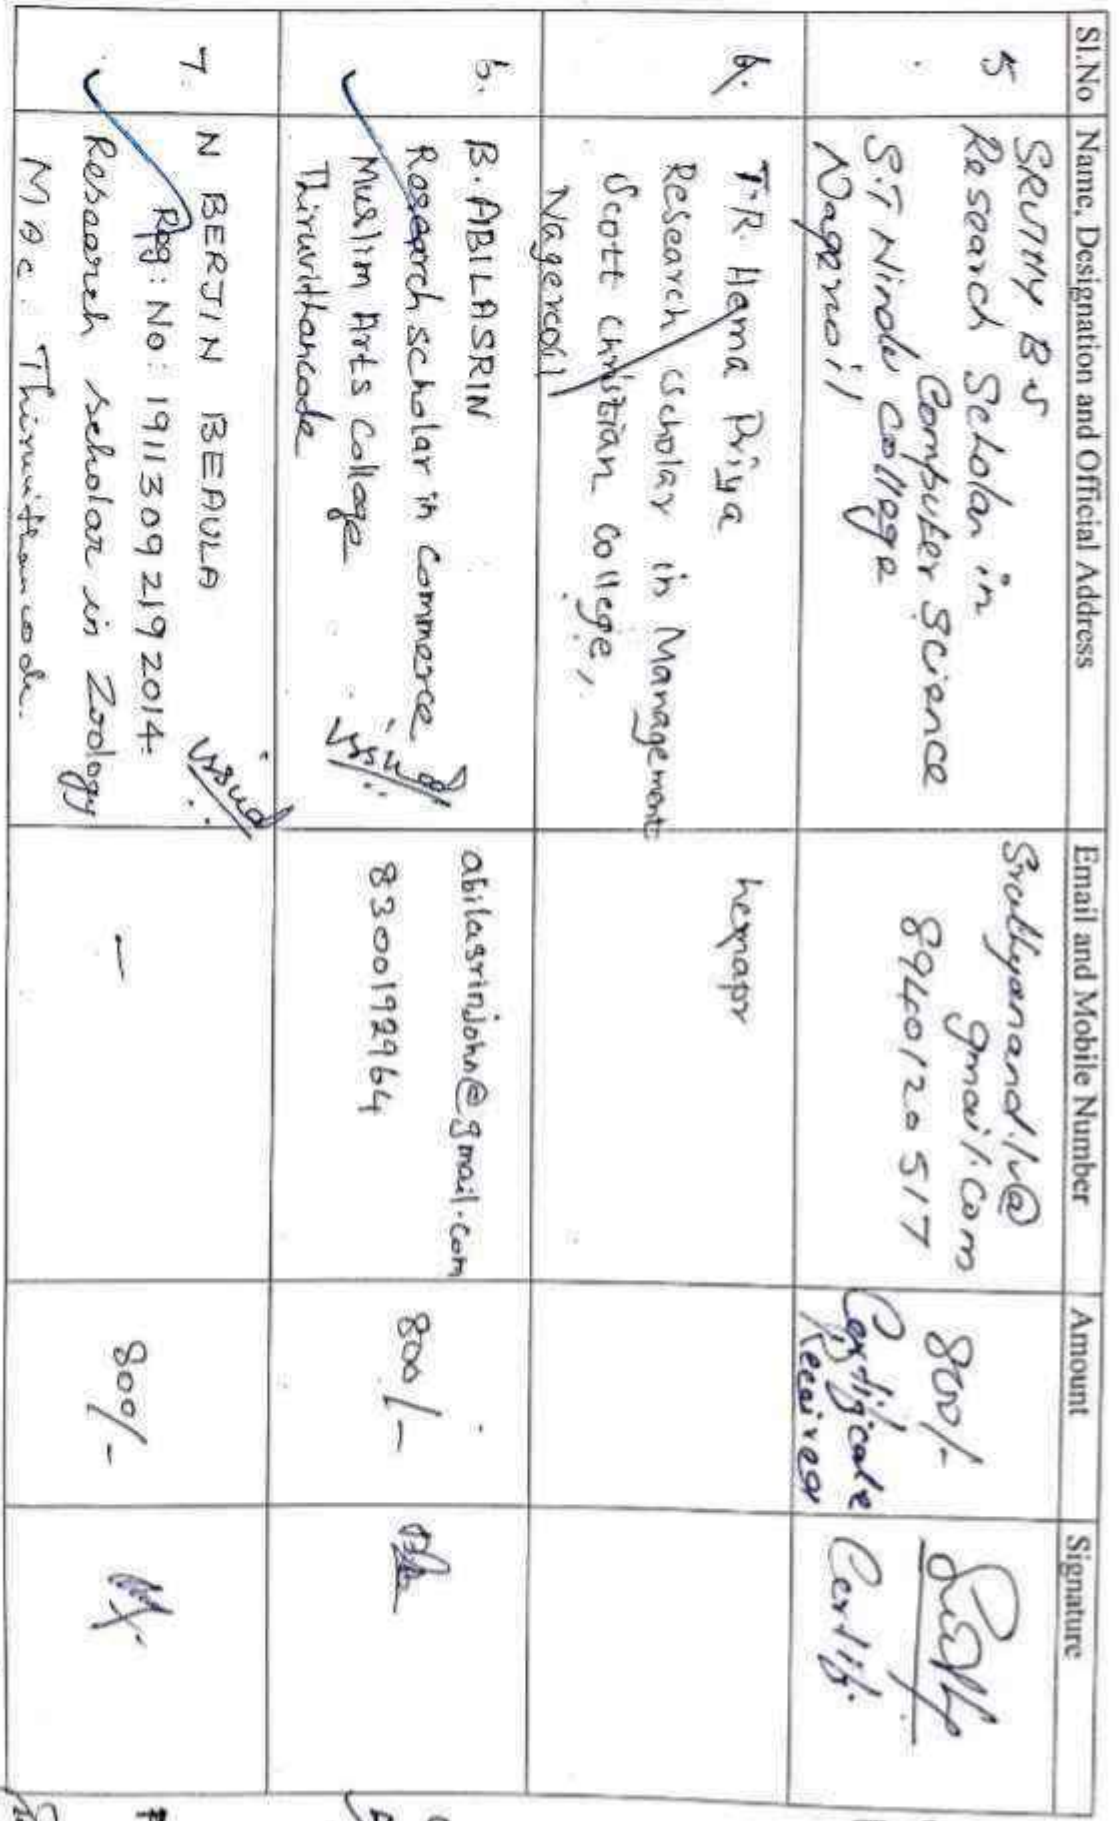 Sl.No Name, Designation and Official Address Email and Mobile Number Amount Signature
5
SRUTHY B S
Research Scholar in
Computer Science
S.T Hindu College
Nagercoil
gmail.com
8940120517
800/-
Certificate
Received
Certifi.
6.
T.R. Hema Priya
Research scholar in Management
Scott Christian College,
Nagercoil
hemapr
6.
B. ABILASRIN
Research scholar in Commerce
Muslim Arts College
Thiruvithancode
issued
abilasrinjohn@gmail.com
8300192964
800/-
7.
N BERJIN BEAULA
Reg: No: 19113092192014
Research scholar in Zoology
MAC Thiruvithancode.
issued
—
800/-